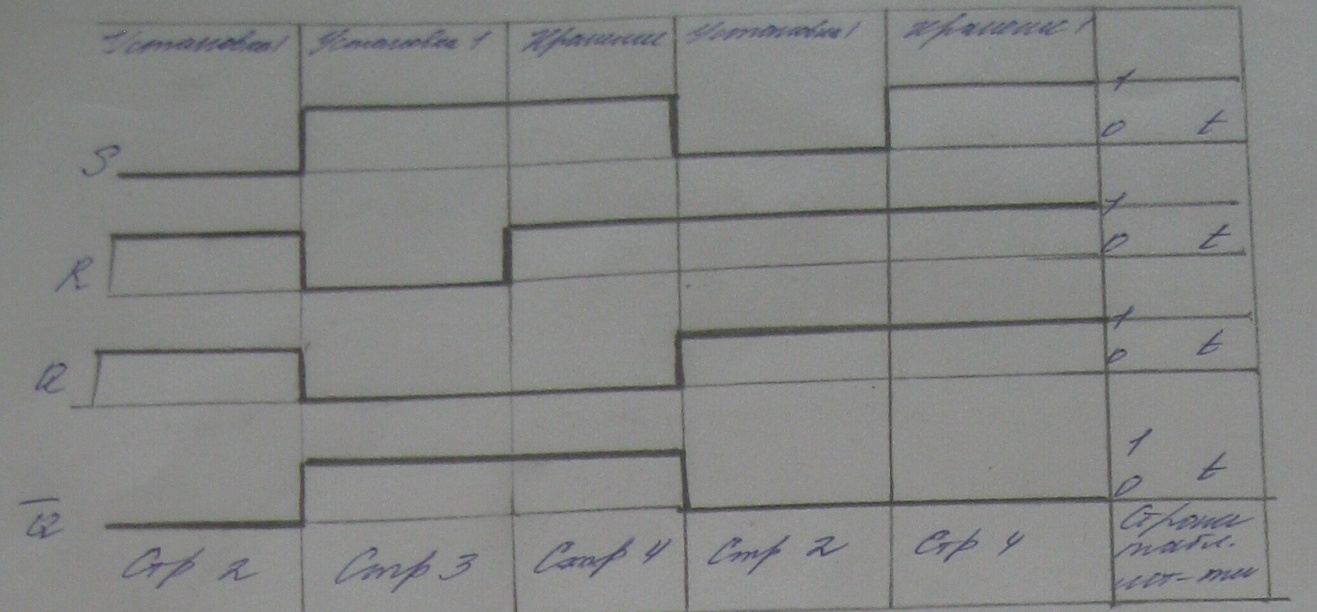 Установка 1 Установка 1 Хранение Установка 1 Хранение 1
S 1
0 t
R 1
0 t
Q 1
0 t
Q̅ 1
0 t
Стр 2 Стр 3 Стр 4 Стр 2 Стр 4 Строки
табл.
ист-ти